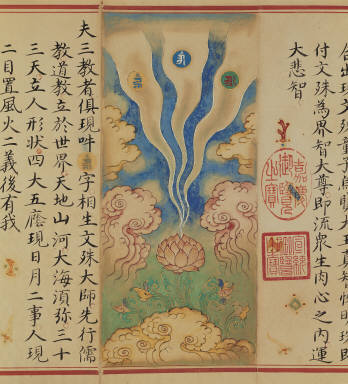 出現文殊童子
付文殊為界智大尊即流衆生肉心之內運
大悲智
嘉慶御覽之寶
宣統御覽之寶
夫三教者俱現吽字相生文殊大師先行儒
教道教立於世界天地山河大海須弥三十
三天立人形狀四大五廕現日月二事人現
二目置風火二義後有我